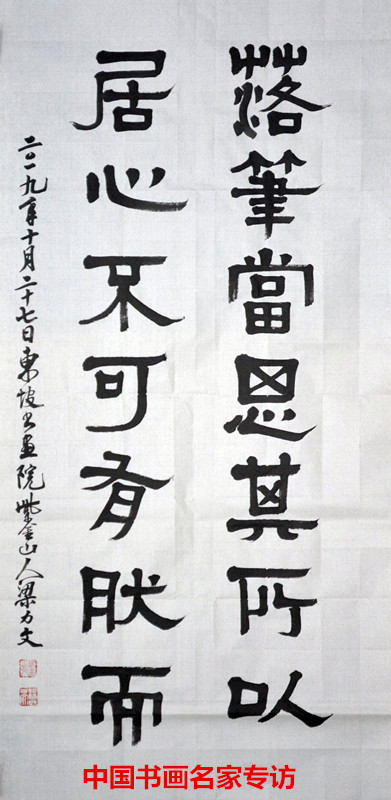 落筆當思其所以
居心不可有肰而
二〇一九年十月二十七日東坡书畫院紫金山人梁力文
中国书画名家专访